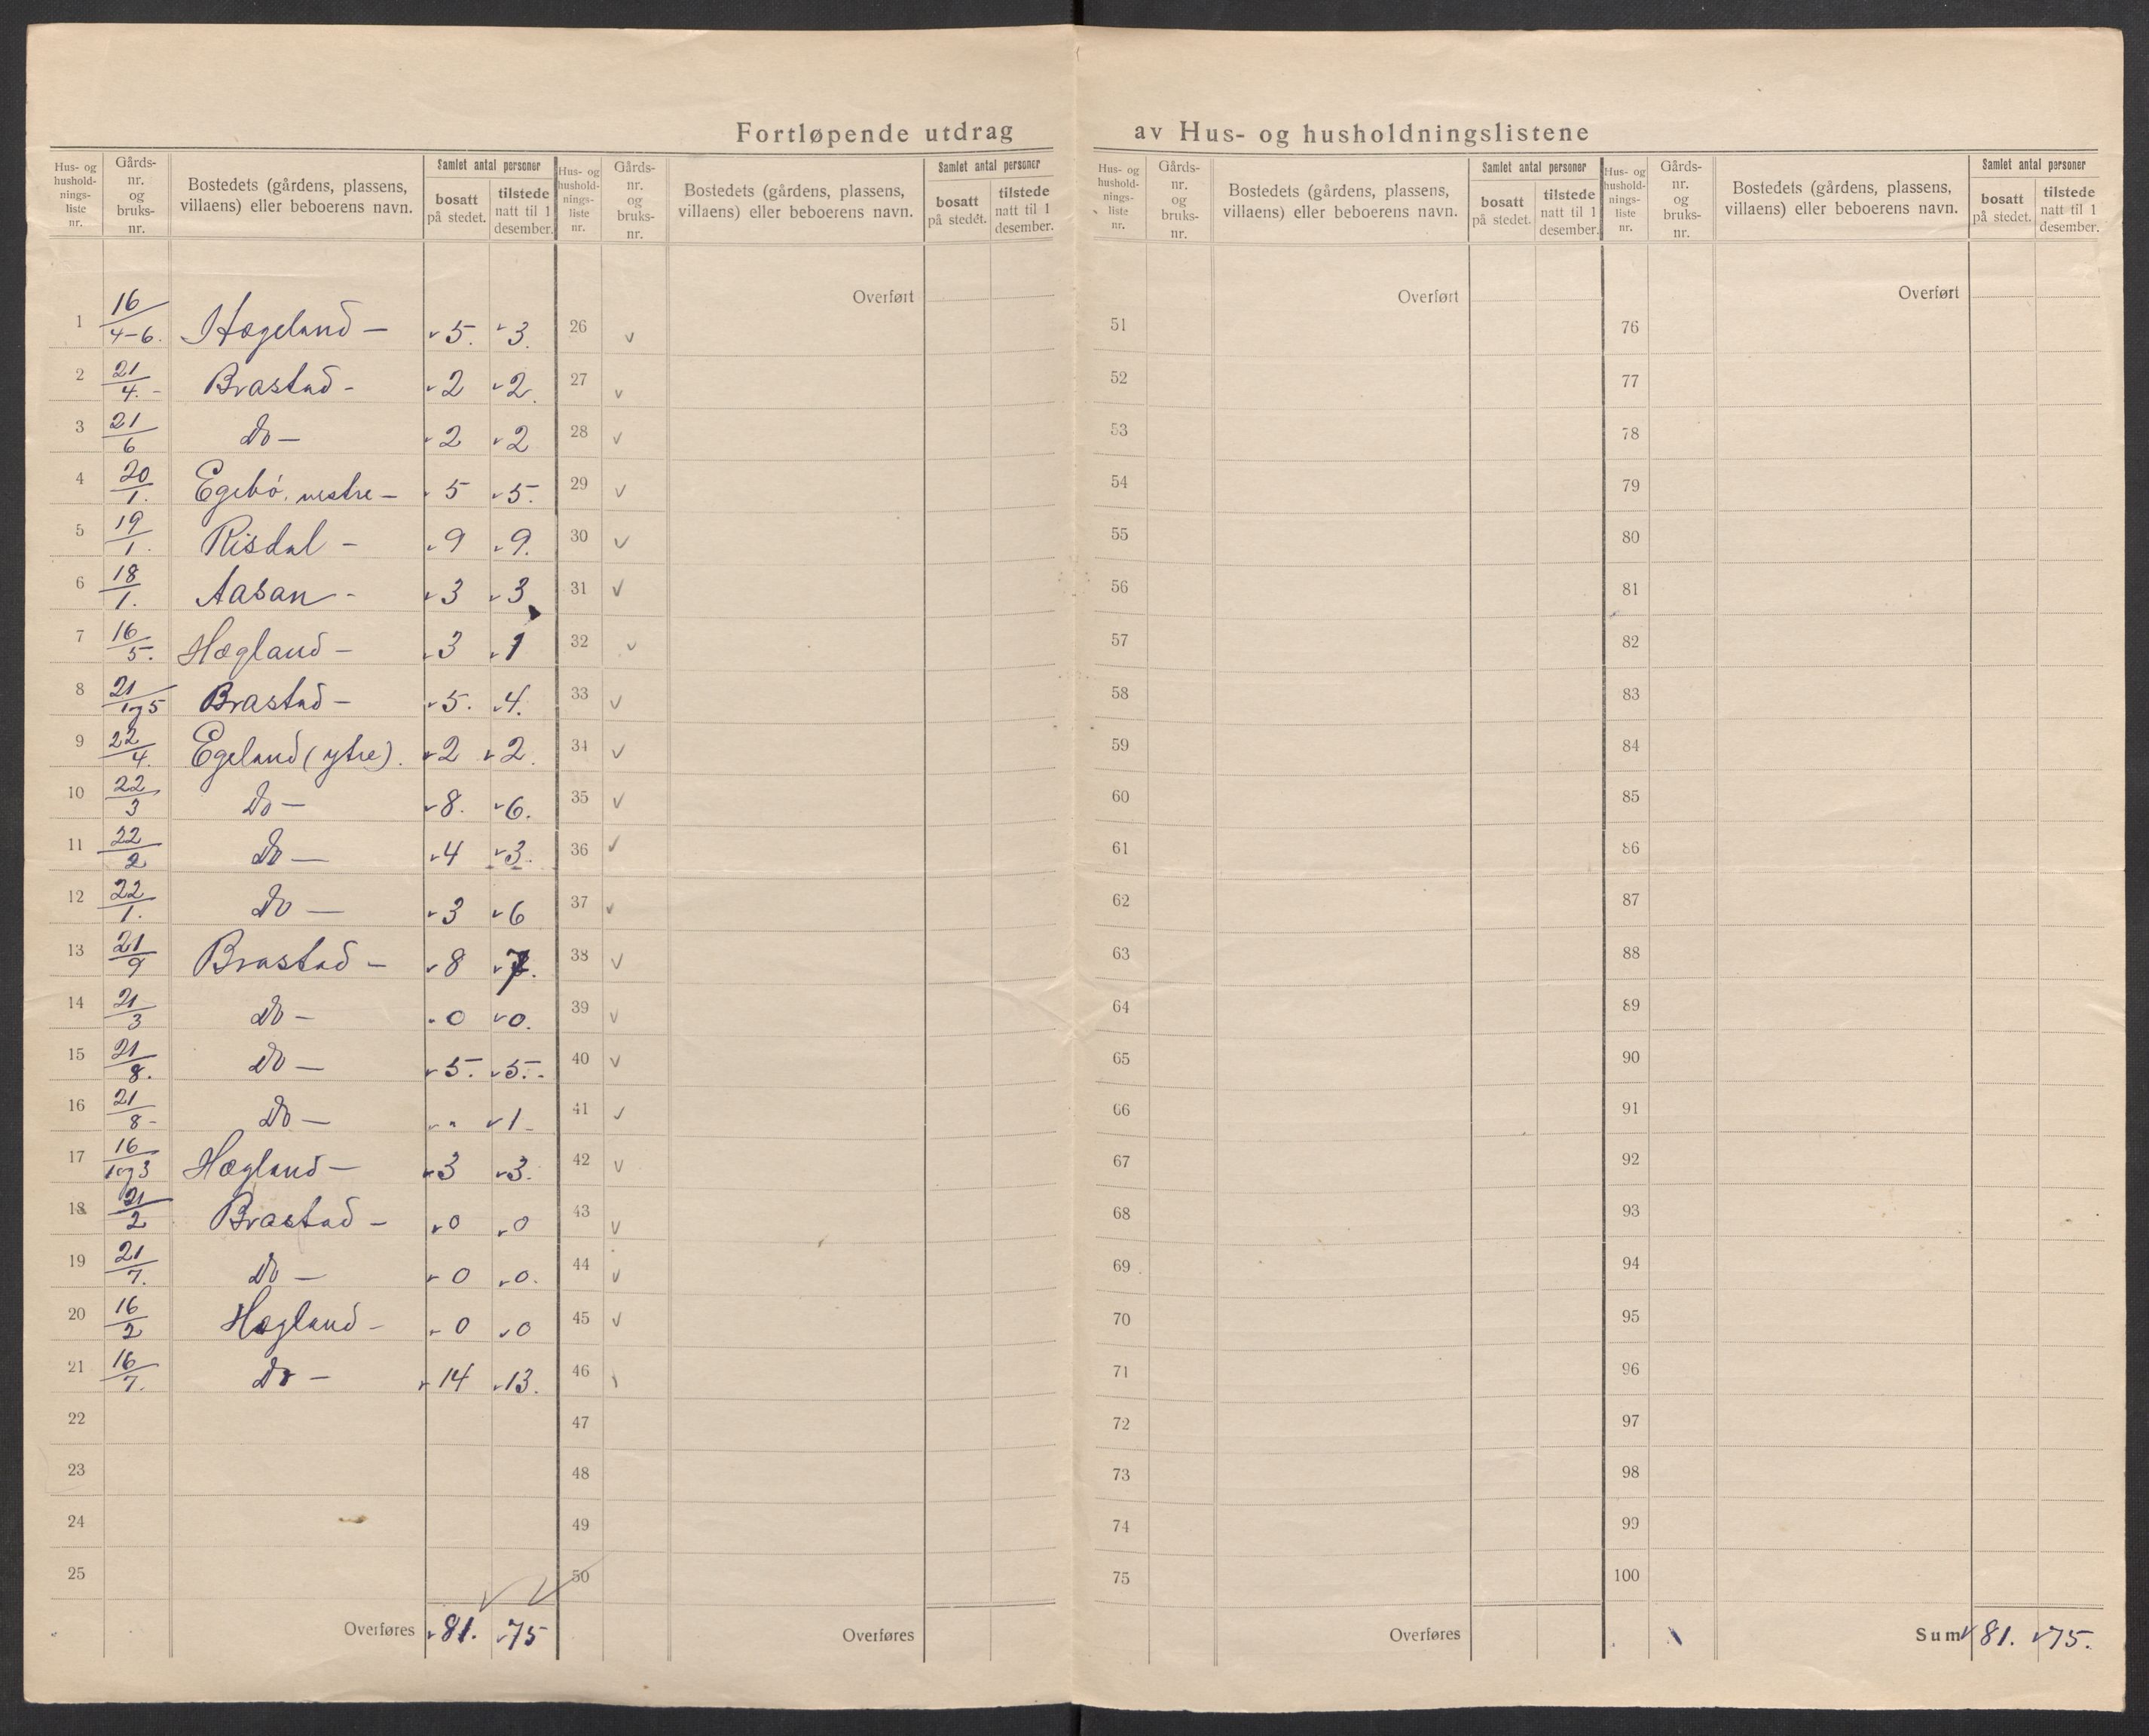 Fortløpende utdrag av Hus- og husholdningslistene
Hus- og husholdnings-liste nr. Gårds-nr. og bruks-nr. Bostedets (gårdens, plassens, villaens) eller beboerens navn. Samlet antal personer bosatt på stedet. tilstede natt til 1 desember.
1 16/4-6. Hægeland — v 5. v 3.
2 21/4. - Brastad - v 2 v 2.
3 21/6 Do — v 2 v 2
4 20/1. Egebø. vestre — v 5 v 5.
5 19/1. Risdal - v 9 v 9.
6 18/1. Aasan - v 3 v 3
7 16/5. Hægland — v 3 v 1
8 21/1og5 Brastad — v 5. v 4.
9 22/4. Egeland (ytre). v 2 v 2.
10 22/3 Do — v 8. v 6.
11 22/2 Do — v 4 v 3.
12 22/1. Do — v 3 v 6
13 21/9 Brastad — v 8 v 7.
14 21/3 Do - v 0 v 0.
15 21/8. Do — v 5. v 5.-
16 21/8- Do — v " v 1-
17 16/1og3 Hægland — v 3 v 3.
18 21/2 Brastad — v 0 v 0
19 21/7. Do — v 0 v 0.
20 16/2 Hægland - v 0 v 0
21 16/7. Do — v 14 v 13.
22
23
24
25
Overføres v 81. v 75
Hus- og husholdnings-liste nr. Gårds-nr. og bruks-nr. Bostedets (gårdens, plassens, villaens) eller beboerens navn. Samlet antal personer bosatt på stedet. tilstede natt til 1 desember.
Overført
26 v
27 v
28 v
29 v
30 v
31 v
32 v
33 v
34 v
35 v
36 v
37 v
38 v
39 v
40 v
41 v
42 v
43 v
44 v
45 v
46
47
48
49
50
Overføres
Hus- og husholdnings-liste nr. Gårds-nr. og bruks-nr. Bostedets (gårdens, plassens, villaens) eller beboerens navn. Samlet antal personer bosatt på stedet. tilstede natt til 1 desember.
Overført
51
52
53
54
55
56
57
58
59
60
61
62
63
64
65
66
67
68
69
70
71
72
73
74
75
Overføres
Hus- og husholdnings-liste nr. Gårds-nr. og bruks-nr. Bostedets (gårdens, plassens, villaens) eller beboerens navn. Samlet antal personer bosatt på stedet. tilstede natt til 1 desember.
Overført
76
77
78
79
80
81
82
83
84
85
86
87
88
89
90
91
92
93
94
95
96
97
98
99
100
Sum v 81. v 75.